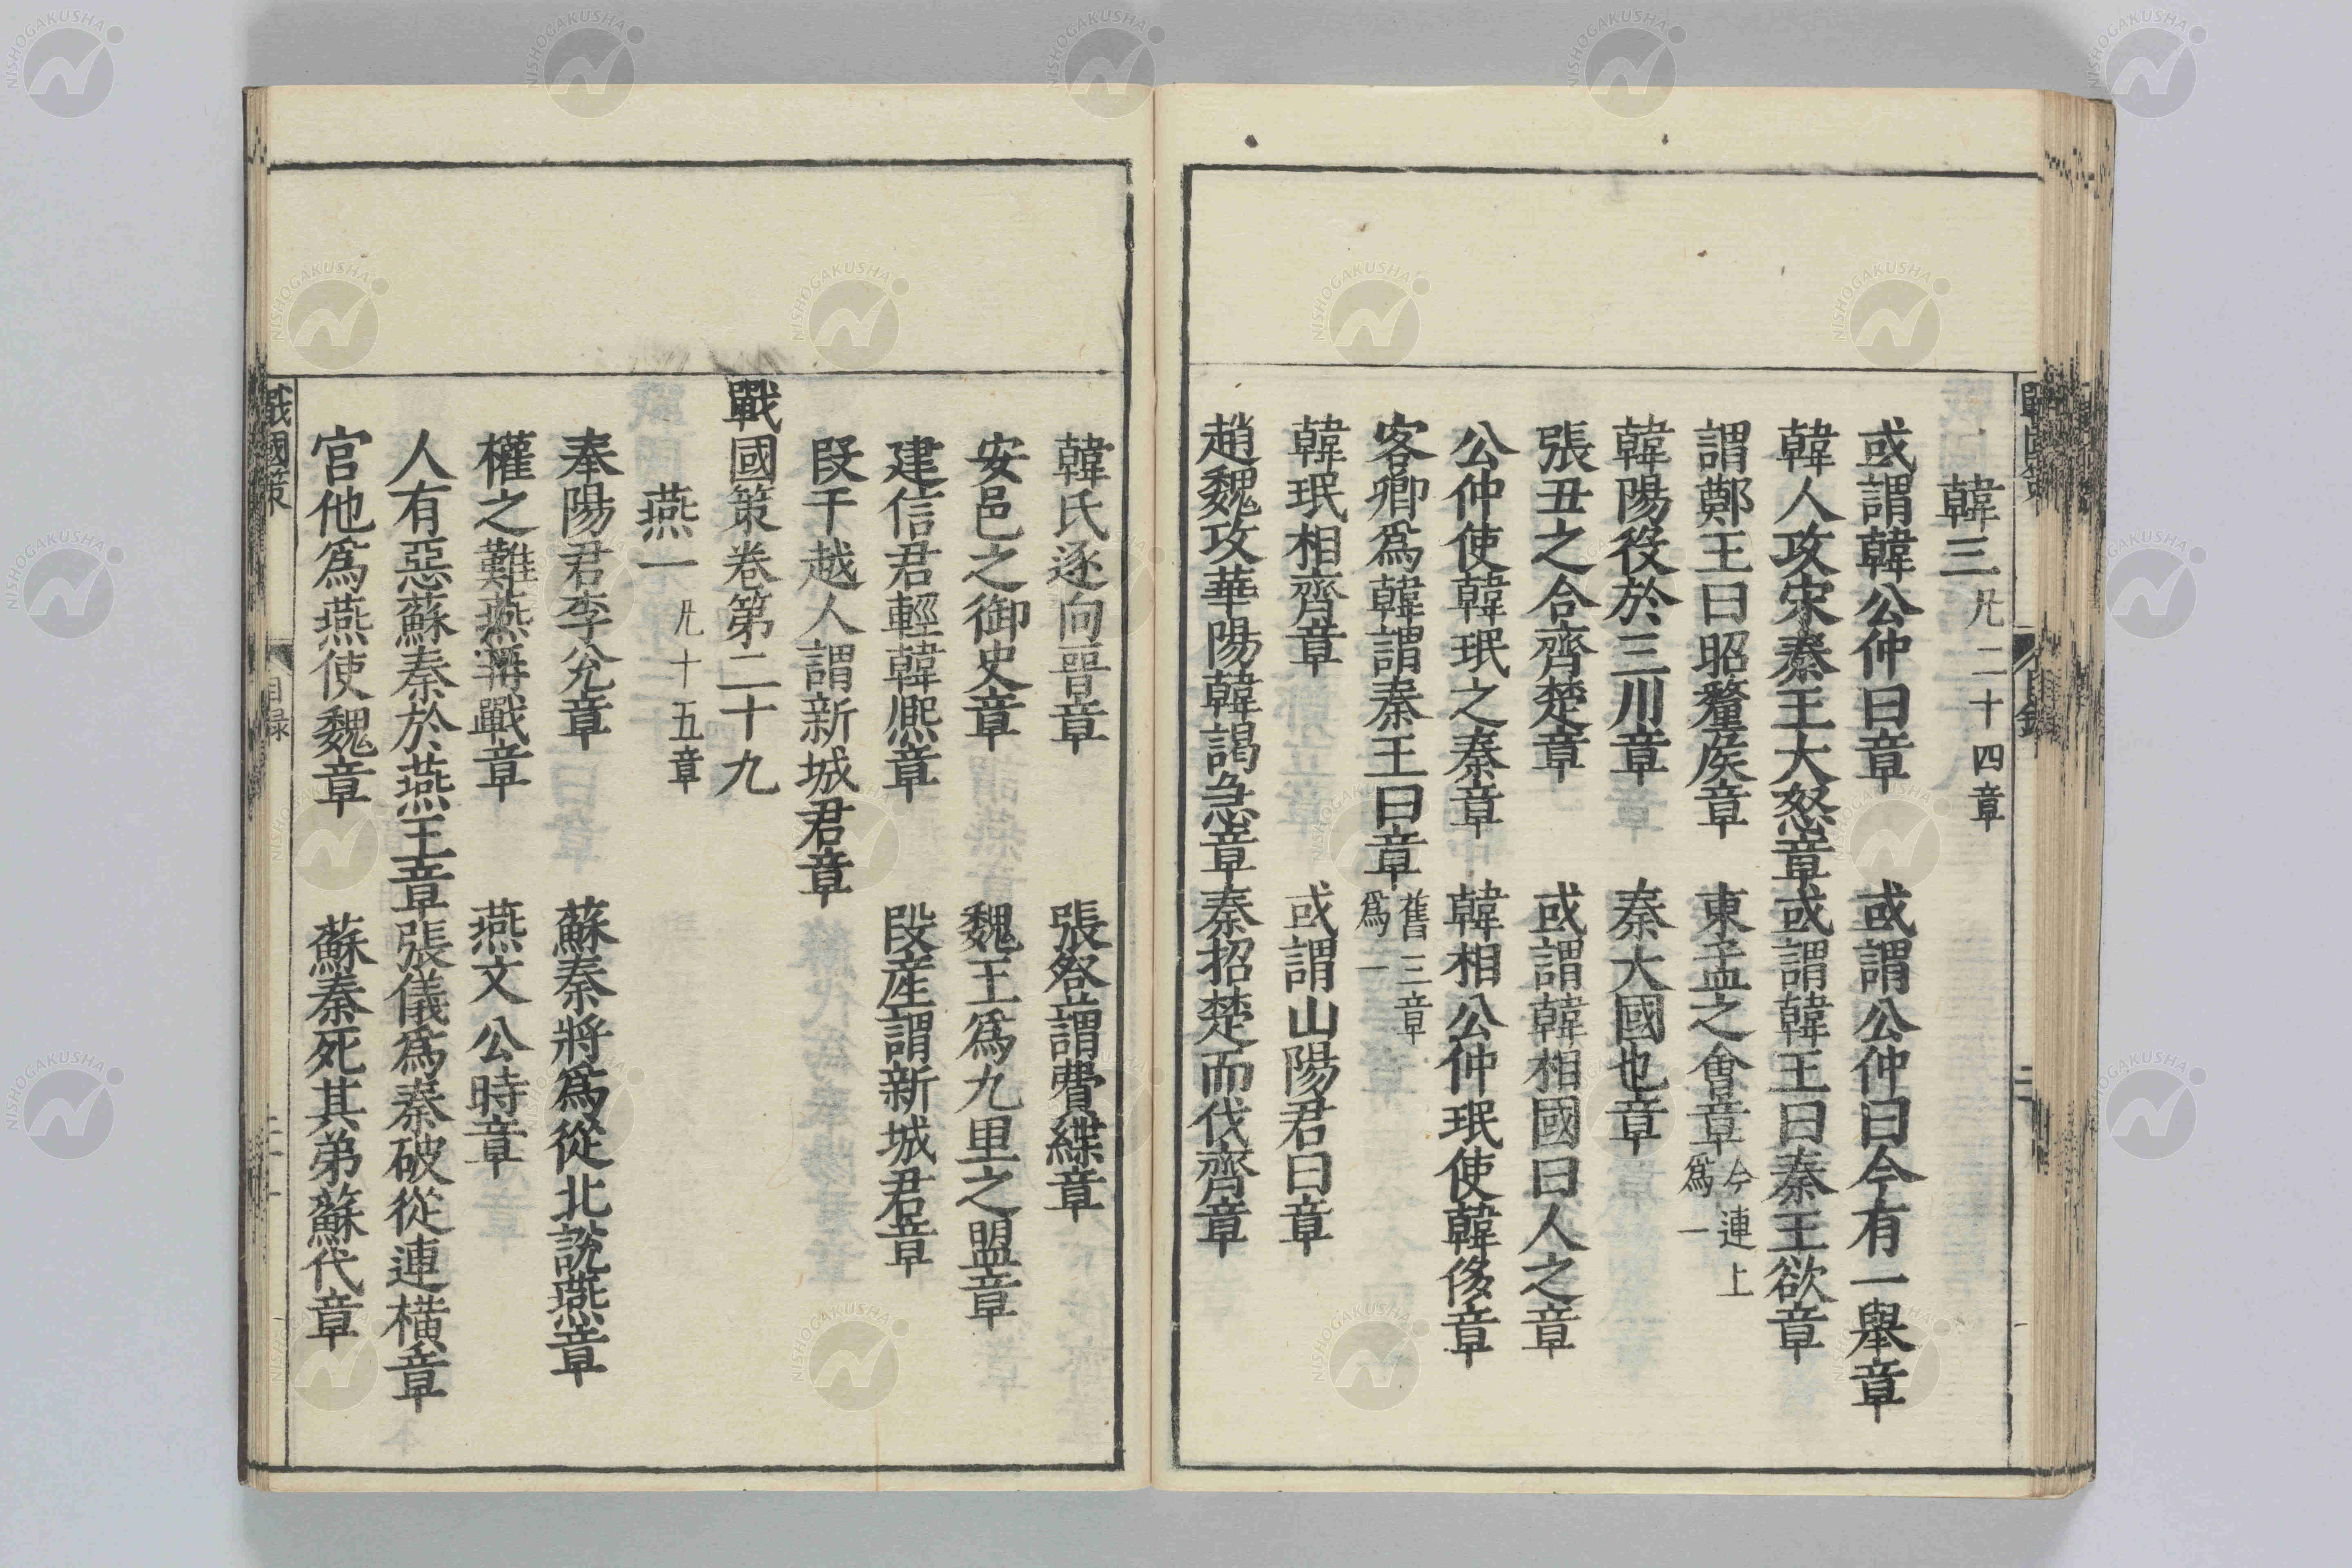 韓三 凡二十四章
或謂韓公仲曰章 或謂公仲曰今有一舉章
韓人攻宋秦王大怒章 或謂韓王曰秦王欲章
謂鄭王曰昭釐侯章 東孟之會章 今連上爲一
韓陽役於三川章 秦大國也章
張丑之合齊楚章 或謂韓相國曰人之章
公仲使韓珉之秦章 韓相公仲珉使韓侈章
客卿爲韓謂秦王曰章 舊三章爲一
韓珉相齊章 或謂山陽君曰章
趙魏攻華陽韓謁急章 秦招楚而伐齊章
韓氏逐向晉章 張登謂費緤章
安邑之御史章 魏王爲九里之盟章
建信君輕韓熈章 段産謂新城君章
段干越人謂新城君章
戰國策卷第二十九
燕一 凡十五章
奉陽君李兊章 蘇秦將爲從北說燕章
權之難燕再戰章 燕文公時章
人有惡蘇秦於燕王章 張儀爲秦破從連橫章
宮他爲燕使魏章 蘇秦死其弟蘇代章
戰國策 目録
NISHOGAKUSHA